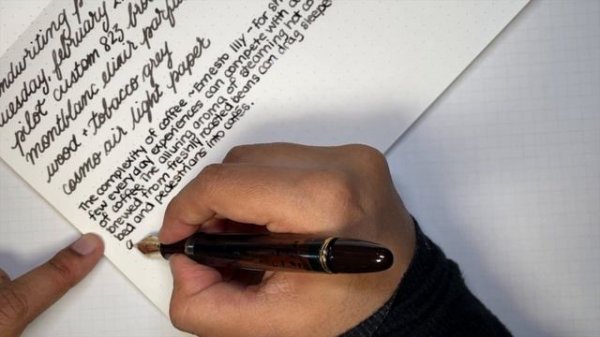 ndwriting p
uesday, february 2
pilot custom 823 bro
montblanc elixir parfu
wood + tobacco grey
cosmo air light paper
The complexity of coffee ~ Ernesto Illy ~ For sh
few everyday experiences can compete with a
of coffee. The alluring aroma of steaming hot co
brewed from freshly roasted beans can drag sleepe
bed and pedestrians into cafes.
a